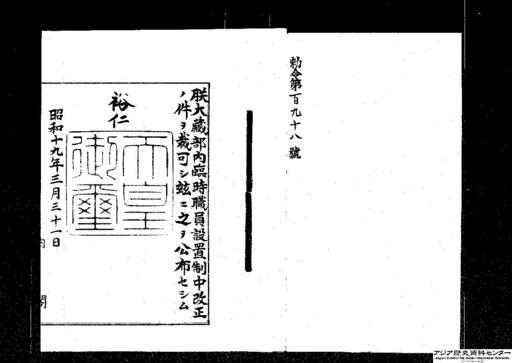 勅令第百九十八號
朕大藏部內臨時職員設置制中改正
ノ件ヲ裁可シ玆ニ之ヲ公布セシム
裕仁
天皇
御璽
昭和十九年三月三十一日
內閣
アジア歴史資料センター
Japan Center for Asian Historical Records